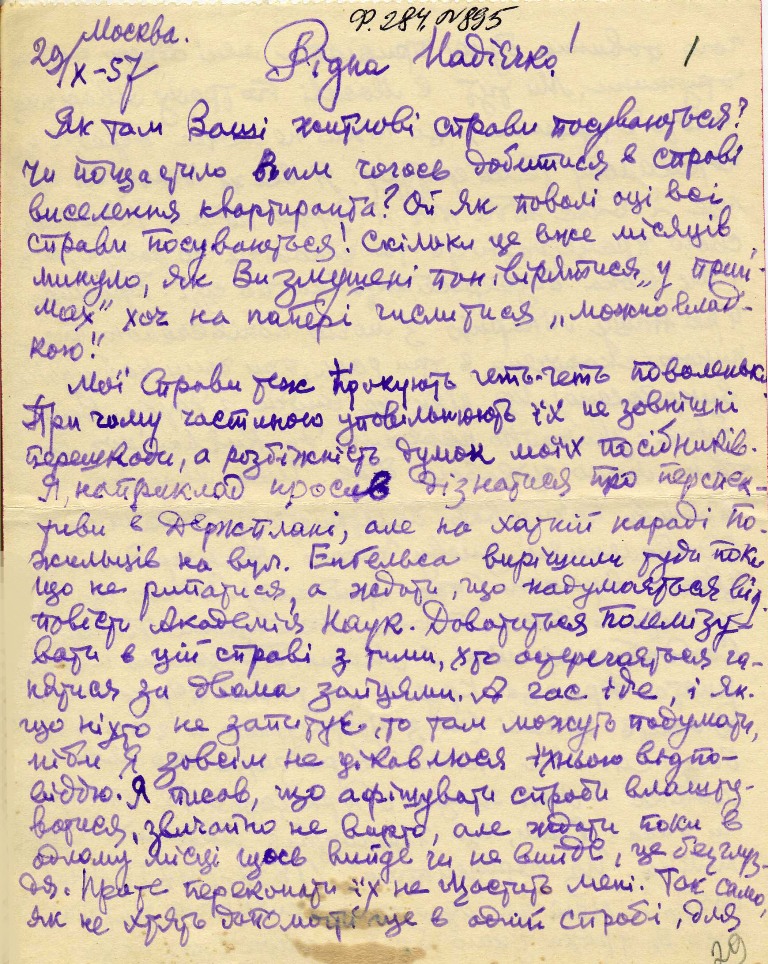 Ф. 284, №895
Москва.
29/X-57
Рідна Надієчко!
1
Як там Ваші житлові справи посуваються?
Чи пощастило Вам чогось добитися в справі
виселення квартиранта? Ой як поволі оці всі
справи посуваються! Скільки це вже місяців
минуло, як Ви змушені поневірятися „у прий-
мах" хоч на папері числитися „можновлад-
кою!"
Мої справи теж прокують геть-геть поволеньки.
При чому частиною уповільнюють їх не зовнішні
перешкоди, а розбіжність думок моїх посібників.
Я, наприклад просив дізнатися про перспек-
тиви в Держплані, але на хатній нараді по-
жильців на вул. Енгельса вирішили туди поки
що не рипатися, а ждати, що надумається від-
повісти Академія Наук. Доводиться полемізу-
вати в цій справі з тими, хто остерігається га-
нятися за двома зайцями. А час іде, і як-
що ніхто не запитує, то там можуть подумати,
ніби я зовсім не цікавлюся їхньою відпо-
віддю. Я писав, що афішувати спроби влашту-
ватися, звичайно не варто, але ждати поки в
одному місці щось вийде чи не вийде, це безглуз-
дя. Проте переконати їх не щастить мені. Так само,
як не хтять допомогти ще в одній спробі, для
29